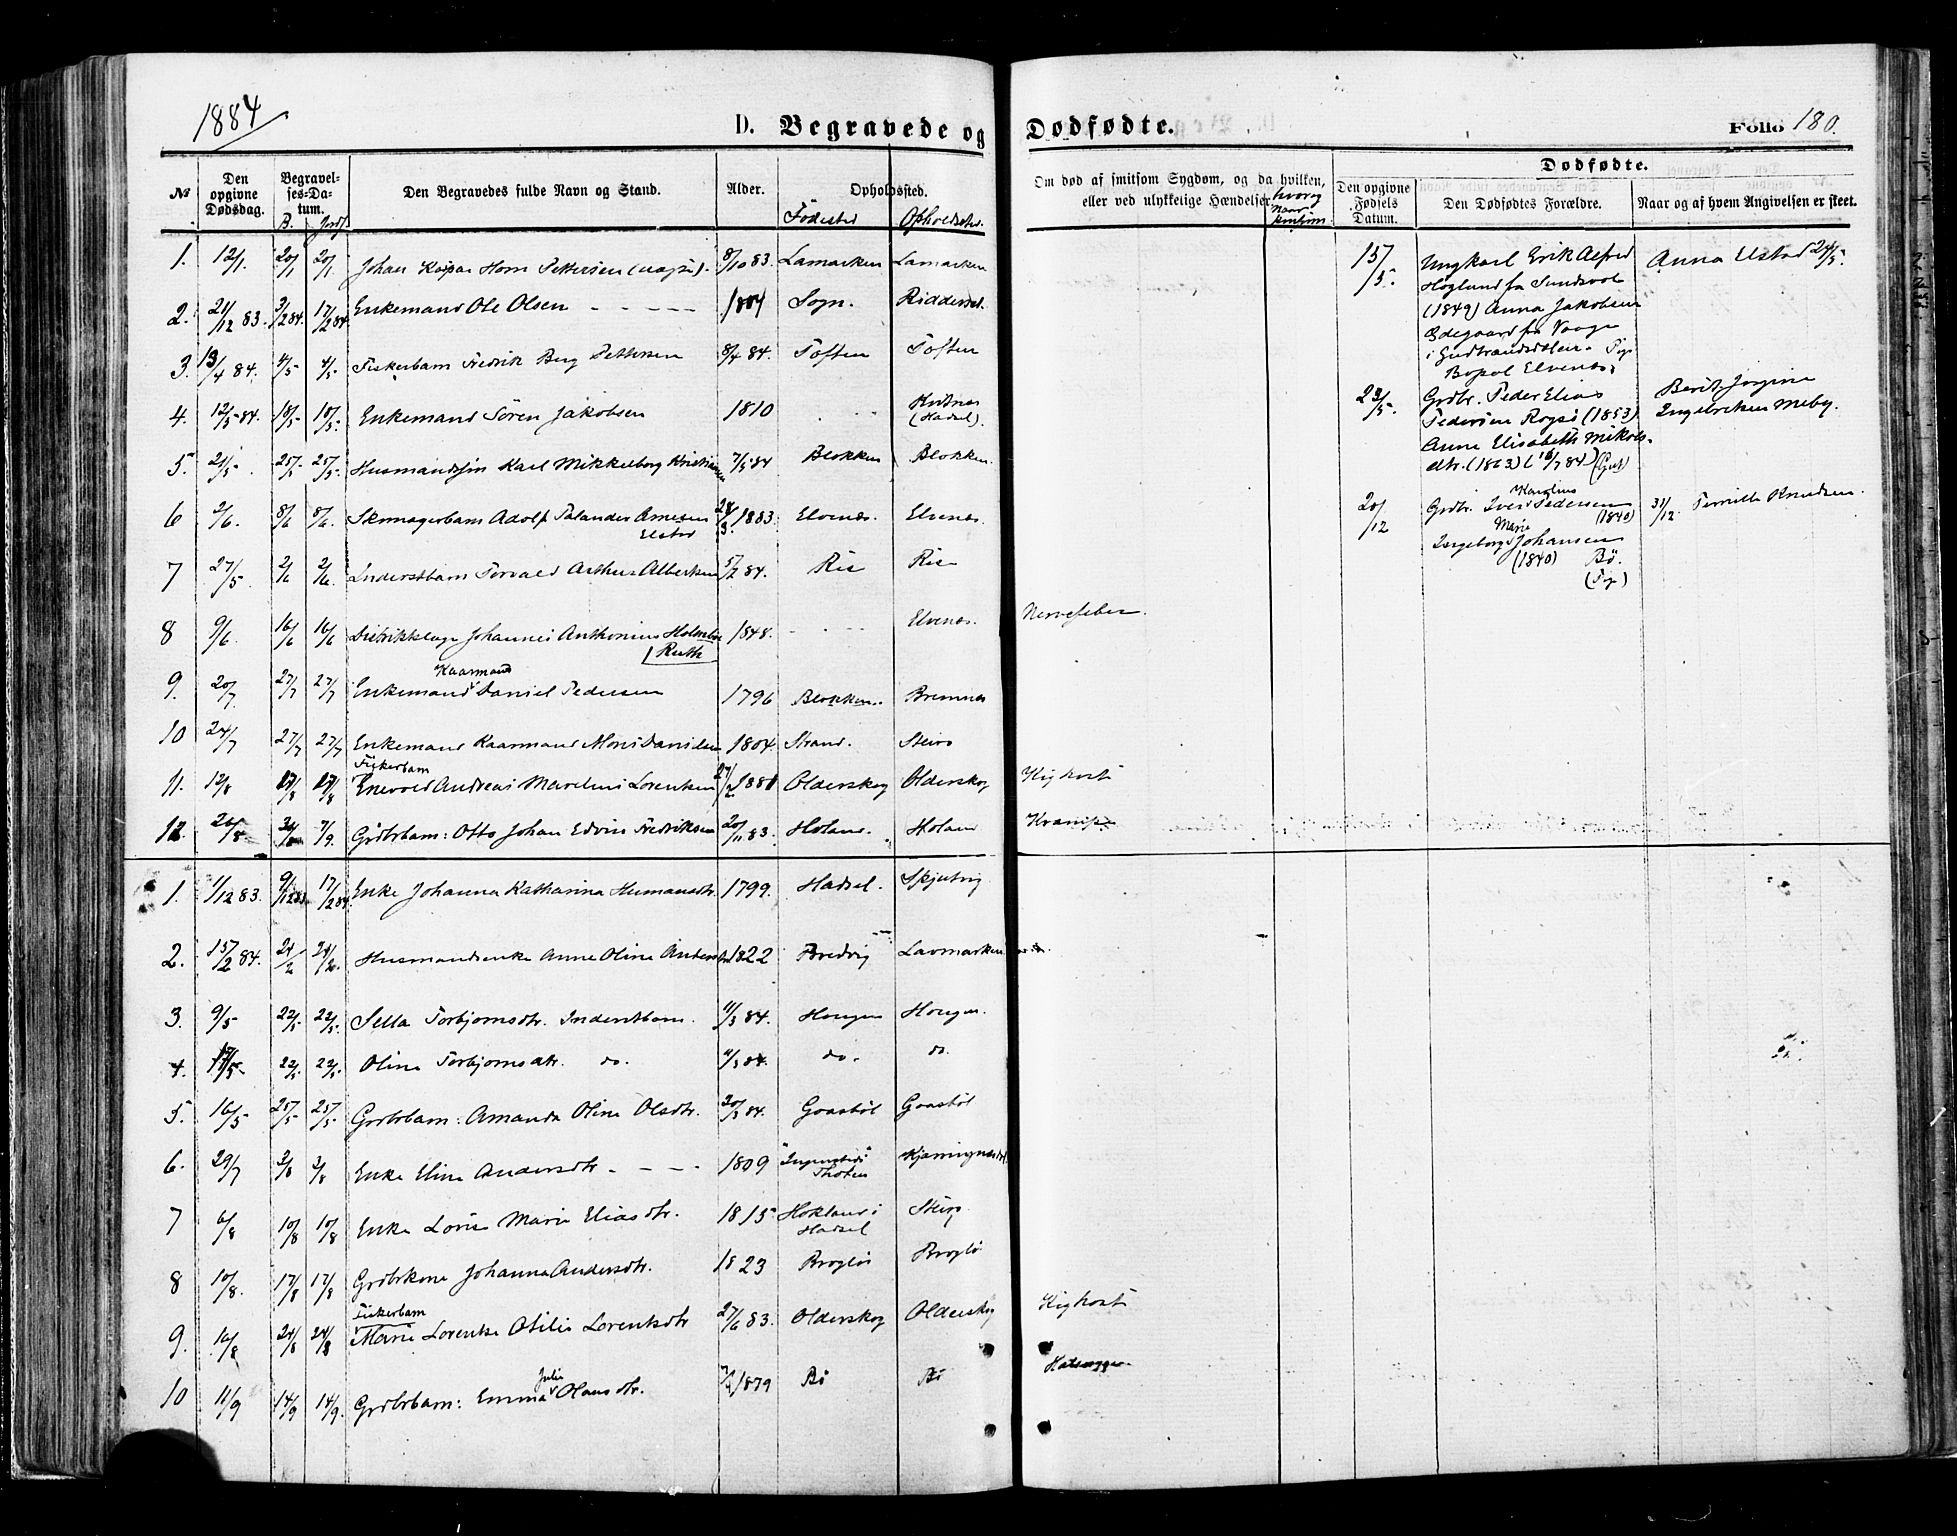 1884
D. Begravede og Dødfødte.
Folio 180.
№
Den opgivne Dødsdag.
Begravelses-Datum.
B. Jordf.
Den Begravedes fulde Navn og Stand.
Alder.
Opholdssted.
Fødested
Opholdssted.
Om død af smitsom Sygdom, og da hvilken, eller ved ulykkelige Hændelser
hvorog naar
Dødfødte.
Den opgivne Fødsels Datum.
Den Dødfødtes Forældre.
Naar og af hvem Angivelsen er skeet.
1. 12/1. 20/1 20/1. Johan Kaspar Horn Pettersen (uægte). 8/10 83. Lamarken Lamarken
2. 21/12 83. 3/2 84. 17/2 84. Enkemand Ole Olsen - - - - 1804 Sogn. Ridderset.
3. 13/4 84. 4/5 4/5. Fiskerbarn Fredrik Berg Pettersen 8/4 84. Toften Toften
4. 12/5 84. 18/5. 18/5. Enkemand Sören Jakobsen 1810 . . . Kvitnes (Hadsel).
5. 21/5. 25/5. 25/5. Husmandssøn Karl Mikkelborg Kristiansen 7/5 84 Blokken Blokken.
6 2/6. 8/6 8/6. Skomagerbarn Adolf Palander Arnesen Elstad 24/3. 1883. Elvenæs. Elvenæs.
7 27/5. 2/6 2/6. Inderstbarn Torvald Arthur Albertsen 5/2 84. Ris Ris
8 9/6. 16/6 16/6 Distriktslæge Johannes Anthonius Holmboe Ruth 1848. - - - Elvenæs. Nervefeber.
9. 20/7. 27/7 27/7. Enkemand Kaarmand Daniel Pedersen 1796 Blokken. Bremnes
10 24/7 27/7. 27/7 Enkemand Kaarmand Mons Danielsen 1804. Strand. Steiro
11. 12/8 17/8 17/8 Fiskerbarn Enevold Andreas Marelius Lorentsen 27/2 1881 Olderskog Olderskog Kighoste
12. 26/8 30/8 7/9. Grdbrbarn: Otto Johan Edvin Fredriksen 20/11 83. Holand. Holand Krampe
1. 1/12 83. 9/12 83. 17/2 84. Enke Johanna Katharina Humansdtr. 1799. Hadsel. Skjutvig
2. 15/2 84. 24/2 24/2. Husmandsenke Anne Oline Andersdtr 1822 Bredvig Lavmarken
3. 9/5 22/5. 22/5. Sella Torbjornsdtr. Inderstbarn. 11/3 84. Hougen Hougen.
4. 17/5. 22/5. 22/5. Oline Torbjornsdtr. do. 11/3 84. do. do.
5. 16/5 25/5 25/5. Grdbrbarn: Amanda Oline Olsdtr. 20/3 84. Gaasbøl Gaasbøl
6. 29/7 3/8 3/8 Enke Elina Andersdtr. - - - 1809 Thoten
7 6/8 10/8 10/8 Enke Lovise Marie Eliasdtr. 1815 Hokland i Hadsel Steiro.
8 10/8. 17/8 17/8 Grdbrkone Johanna Andersdtr. 1823 Brogløs Brogløs
9. 16/8 24/8 24/8 Fiskerbarn Marie Lorentse Otilie Lorentsdtr 27/6 83. Olderskog Olderskog Kighoste
10 11/9 14/9 14/9. Grdbrbarn: Emma Julie Olausdtr. 1879 Bø Bø
15/5. Ungkarl Erik Alfred Høglund fra Sundsvol (1849) Anna Jakobsen Ødegaard fra Vaage i Gudbrandsdalen. Pige Bopæl Elvenæs.
Anna Elstad 24/5.
23/5. Grdbr. Peder Elias Pedersen Rogsø (1853) Anne Elisabeth Mikalsdtr. (1863) (16/7 84) (Gut)
Berit Jorgine Ingebriktsen Meby.
20/12 Grdbr. Iver Karolius Pedersen (1840) Ingeborg Marie Johansen (1840) Bø. (Pige)
31/12. Pernille Knudsen.